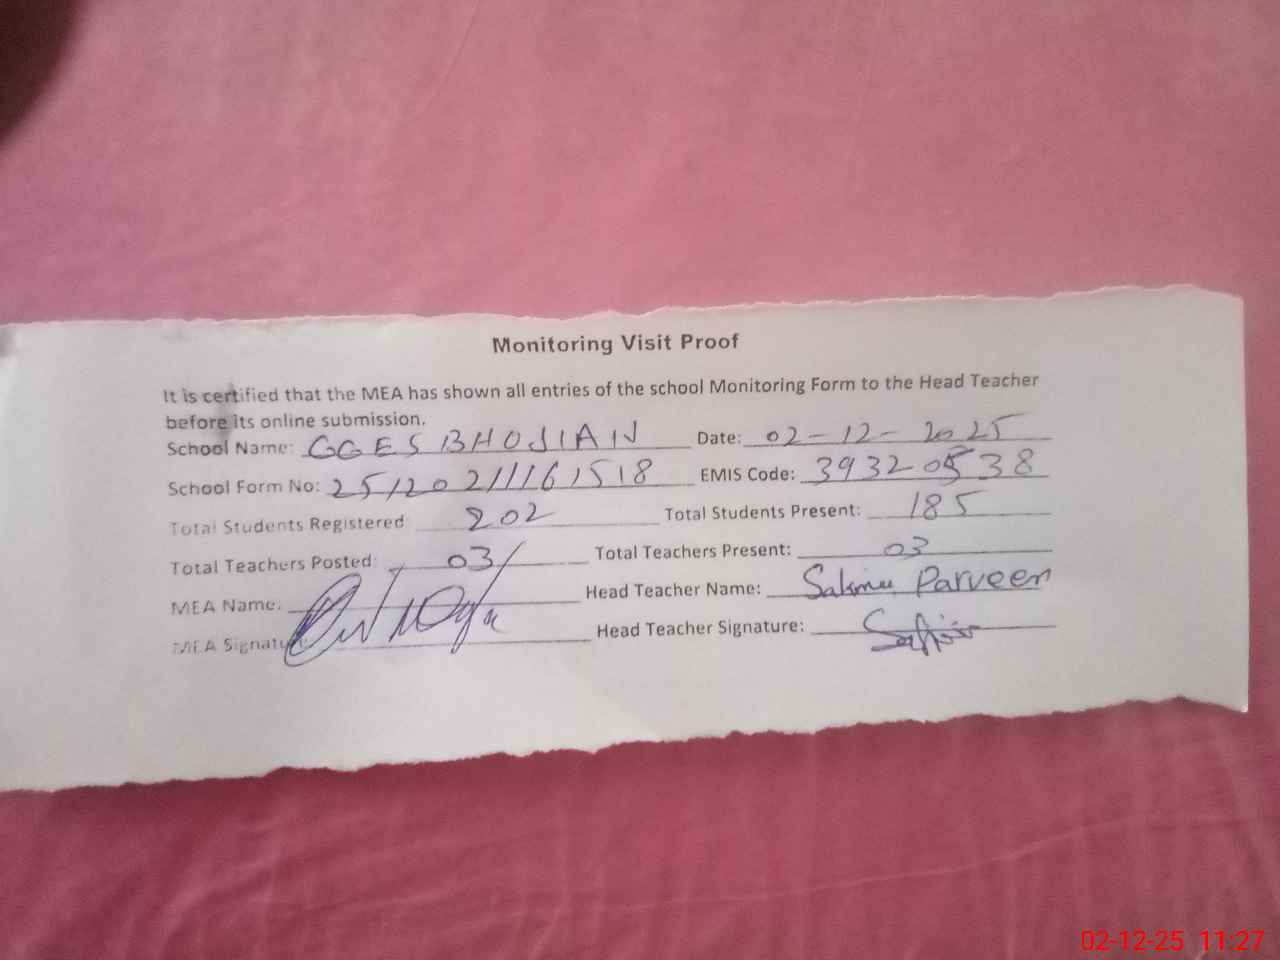 Monitoring Visit Proof
It is certified that the MEA has shown all entries of the school Monitoring Form to the Head Teacher
before its online submission.
School Name: GGES BHOJIAN Date: 02-12-2025
School Form No: 25120211161518 EMIS Code: 39320538
Total Students Registered 202 Total Students Present: 185
Total Teachers Posted: 03 Total Teachers Present: 03
MEA Name: Head Teacher Name: Parveen
MEA Signature: Head Teacher Signature:
02-12-25 11:27